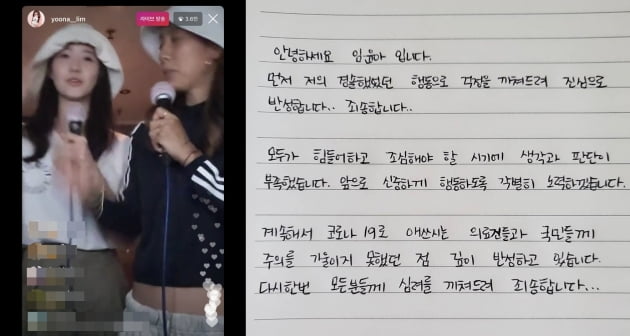 yoona__lim
라이브 방송
3.6만
안녕하세요 임윤아 입니다.
먼저 저의 경솔했었던 행동으로 걱정을 끼쳐드려 진심으로
반성합니다.. 죄송합니다..
모두가 힘들어하고 조심해야 할 시기에 생각과 판단이
부족했습니다. 앞으로 신중하게 행동하도록 각별히 노력하겠습니다.
계속해서 코로나19로 애쓰시는 의료진들과 국민들께
주의를 기울이지 못했던 점 깊이 반성하고 있습니다.
다시한번 모든분들께 심려를 끼쳐드려 죄송합니다...